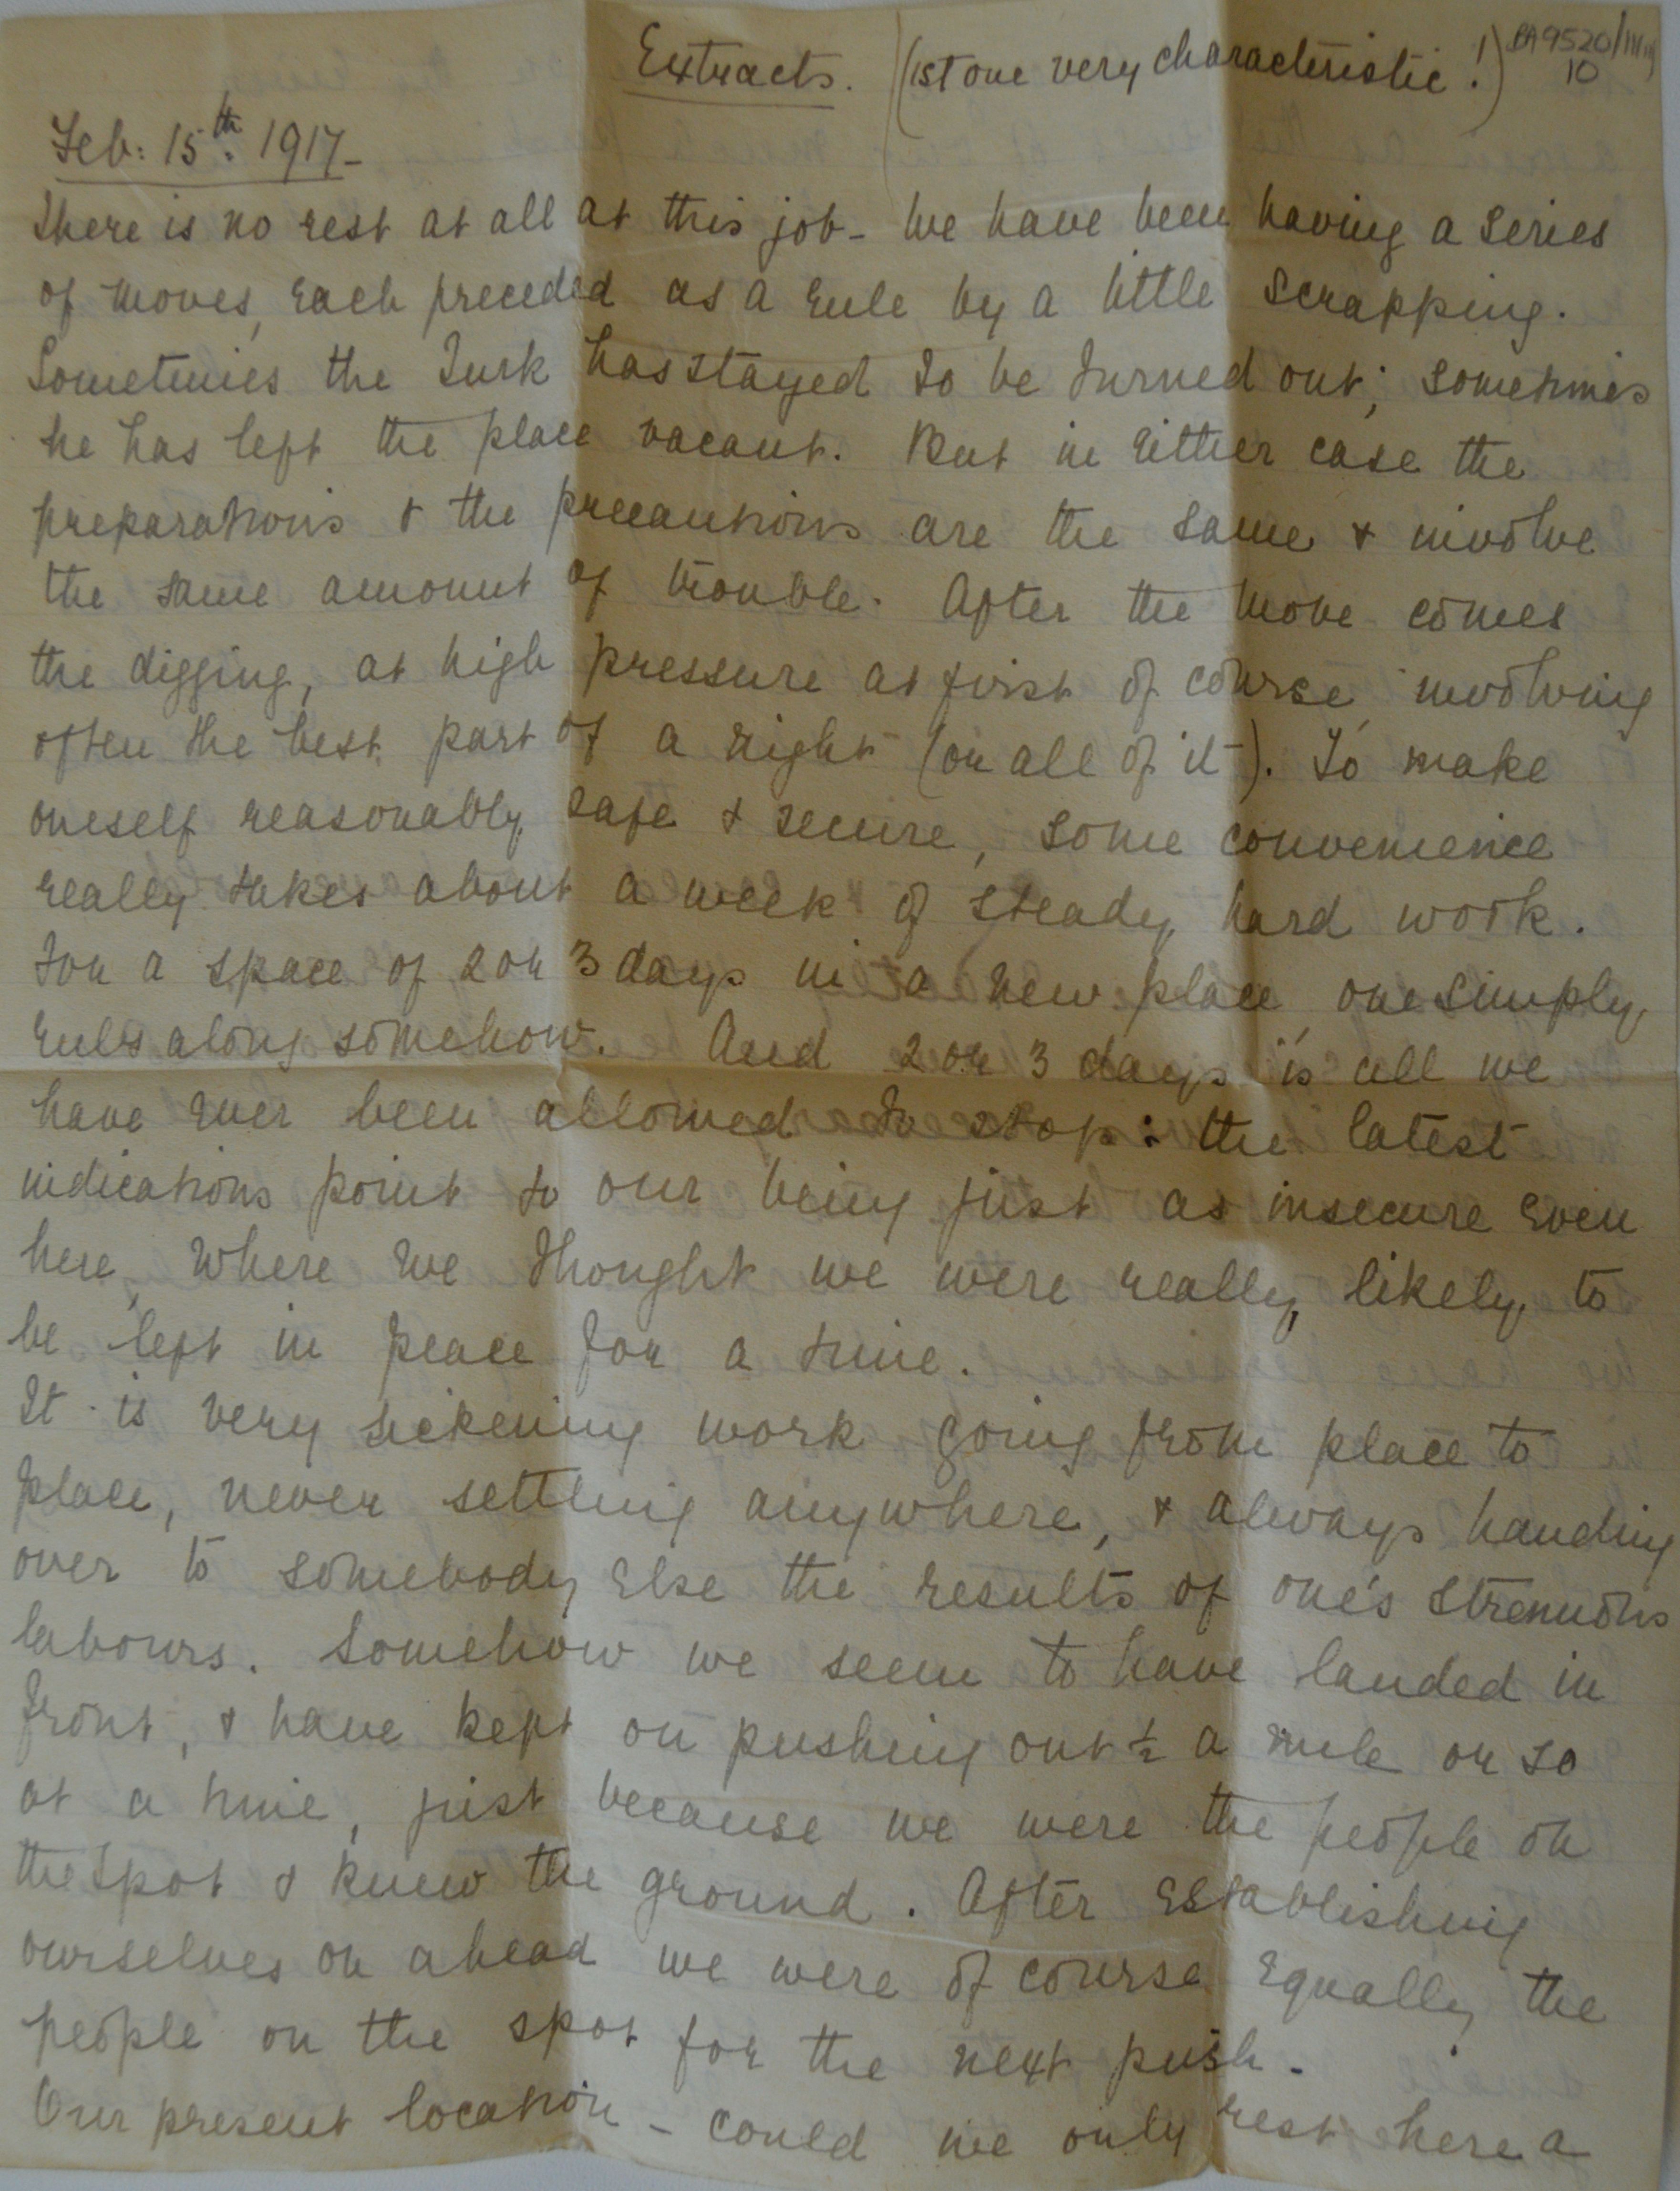 Extracts. (1st one very characteristic!)
10
Feb: 15th. 1917-
There is no rest at all at this job- We have been having a series
of moves, each preceded as a rule by a little scrapping.
Sometimes the Turk has stayed to be turned out; sometimes
he has left the place vacant. But in either case the
preparations & the precautions are the same & involve
the same amount of trouble. After the move comes
the digging, at high pressure at first of course, involving
often the best part of a night (or all of it). To make
oneself reasonably safe & secure, some convenience
really takes about a week of steady hard work.
For a space of 2 or 3 days in a new place one simply
rubs along somehow. And 2 or 3 days is all we
have ever been allowed to stop: the latest
indications point to our being just as insecure even
here, where we thought we were really likely to
be left in peace for a time.
It is very sickening work going from place to
place, never settling anywhere, & always handing
over to somebody else the results of one's strenuous
labours. Somehow we seem to have landed in
front, & have kept on pushing out ½ a mile or so
at a time, just because we were the people on
the spot & knew the ground. After establishing
ourselves on ahead we were of course equally the
people on the spot for the next push.
Our present location - could we only rest here a